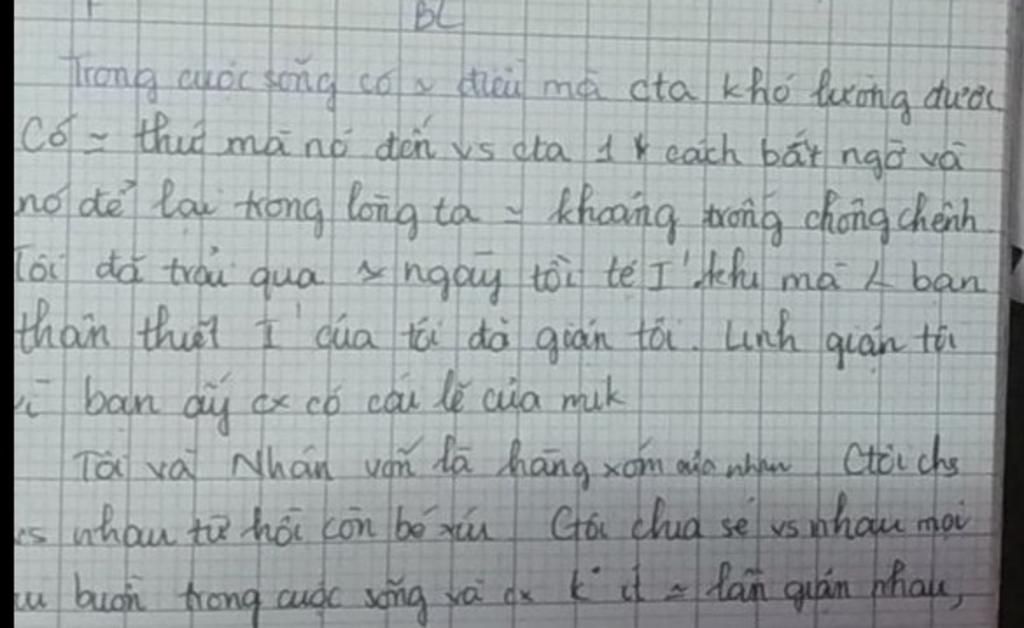 BL
Trong cuộc sống có ~ điều mà cta khó lường được
Có ~ thứ mà nó đến vs cta 1 cách bất ngờ và
nó để lại trong lòng ta ~ khoảng trống chông chênh
Tôi đã trải qua ~ ngày tồi tệ I' khi mà bạn
thân thiết I' của tôi đã giận tôi. Linh giận tôi
vì bạn ấy cx có cái lẽ của mik
Tôi và Nhân vốn là hàng xóm của nhau Ctôi chs
vs nhau từ hồi còn bé xíu Ctôi chia sẻ vs nhau mọi
buồn trong cuộc sống và cx k ít ~ lần giận nhau,